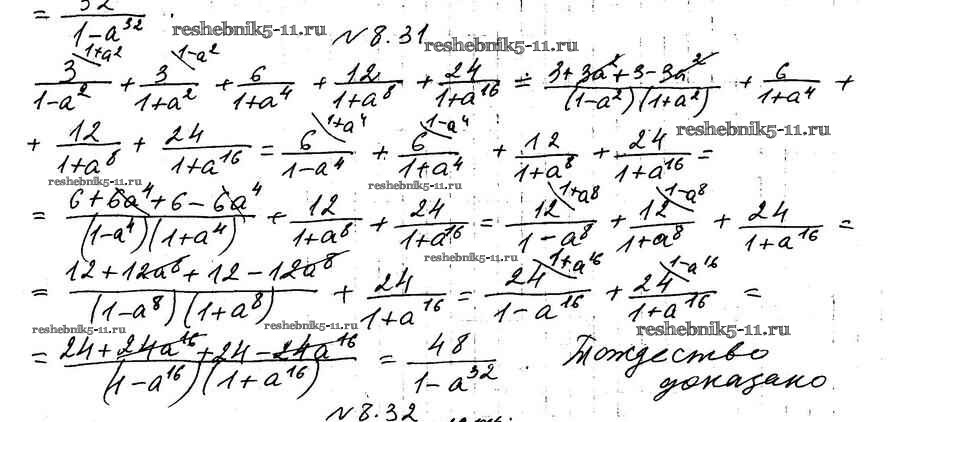 = 32/(1-a³²) .
reshebnik5-11.ru
№ 8.31
3/(1-a²) (1+a² + 3/(1+a²) (1-a² + 6/(1+a⁴) + 12/(1+a⁸) + 24/(1+a¹⁶) = (3+3a²+3-3a²)/((1-a²)(1+a²)) + 6/(1+a⁴) +
reshebnik5-11.ru
+ 12/(1+a⁸) + 24/(1+a¹⁶) = 6/(1-a⁴) (1+a⁴ + 6/(1+a⁴) (1-a⁴ + 12/(1+a⁸) + 24/(1+a¹⁶) =
reshebnik5-11.ru reshebnik5-11.ru
= (6+6a⁴+6-6a⁴)/((1-a⁴)(1+a⁴)) + 12/(1+a⁸) + 24/(1+a¹⁶) = 12/(1-a⁸) (1+a⁸ + 12/(1+a⁸) (1-a⁸ + 24/(1+a¹⁶) =
reshebnik5-11.ru reshebnik5-11.ru
= (12+12a⁸+12-12a⁸)/((1-a⁸)(1+a⁸)) + 24/(1+a¹⁶) = 24/(1-a¹⁶) (1+a¹⁶ + 24/(1+a¹⁶) (1-a¹⁶ =
reshebnik5-11.ru reshebnik5-11.ru reshebnik5-11.ru
= (24+24a¹⁶+24-24a¹⁶)/((1-a¹⁶)(1+a¹⁶)) = 48/(1-a³²) . Тождество
доказано.
№ 8.32